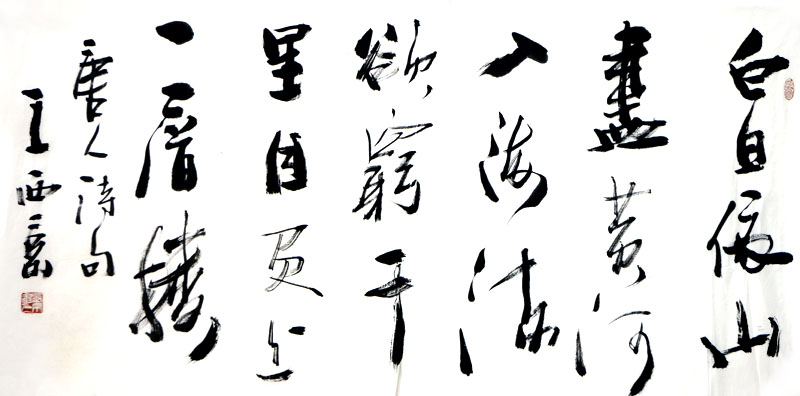 白日依山
盡黄河
入海流
欲窮千
里目更上
一層樓
唐人诗句
王西